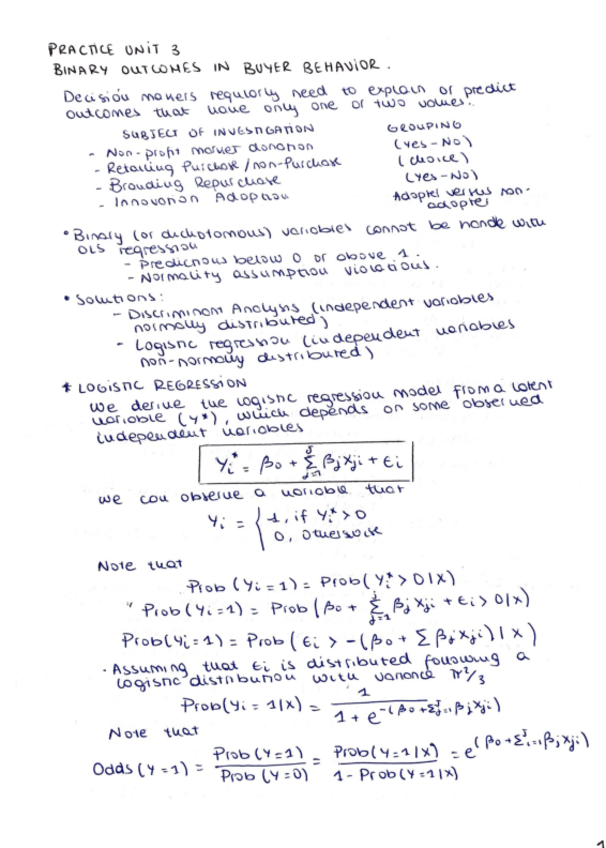 PRACTICE UNIT 3
BINARY OUTCOMES IN BUYER BEHAVIOR.
Decision makers regularly need to explain or predict
outcomes that have only one or two values.
SUBJECT OF INVESTIGATION GROUPING
- Non-profit market donation (yes-No)
- Retailing Purchase/non-Purchase (choice)
- Branding Repurchase (yes-No)
- Innovation Adoption Adopter versus non-
adopter
• Binary (or dichotomous) variables cannot be handle with
OLS regression
- Predictions below 0 or above 1.
- Normality assumption violations.
• Solutions:
- Discriminant Analysis (independent variables
normally distributed)
- Logistic regression (independent variables
non-normally distributed)
* LOGISTIC REGRESSION
We derive the logistic regression model from a latent
variable (y*), which depends on some observed
independent variables
Yi* = β0 + Σ_{j=1}^{J} βjXji + εi
We can observe a variable that
Yi = { 1, if Yi* > 0
0, otherwise
Note that
Prob (Yi = 1) = Prob (Yi* > 0 | X)
" Prob (Yi = 1) = Prob (β0 + Σ_{j=1}^{J} βj Xji + εi > 0 | X)
Prob (Yi = 1) = Prob (εi > -(β0 + Σ βj Xji) | X)
· Assuming that εi is distributed following a
logistic distribution with variance π²/3
Prob(Yi = 1|X) = 1 / (1 + e^{-(β0 + Σ_{j=1}^{J} βj Xji)})
Note that
Odds (Y = 1) = Prob (Y = 1) / Prob (Y = 0) = Prob (Y = 1|X) / (1 - Prob (Y = 1|X)) = e^{(β0 + Σ_{i=1}^{J} βj Xji)}
1